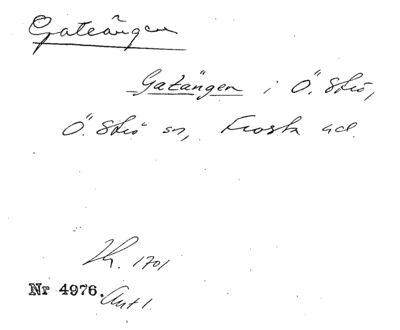 Gateängen
Gatängen i Ö. Strö,
Ö. Strö sn, Frosta hd.
1701
Nr 4976. Avt 1.